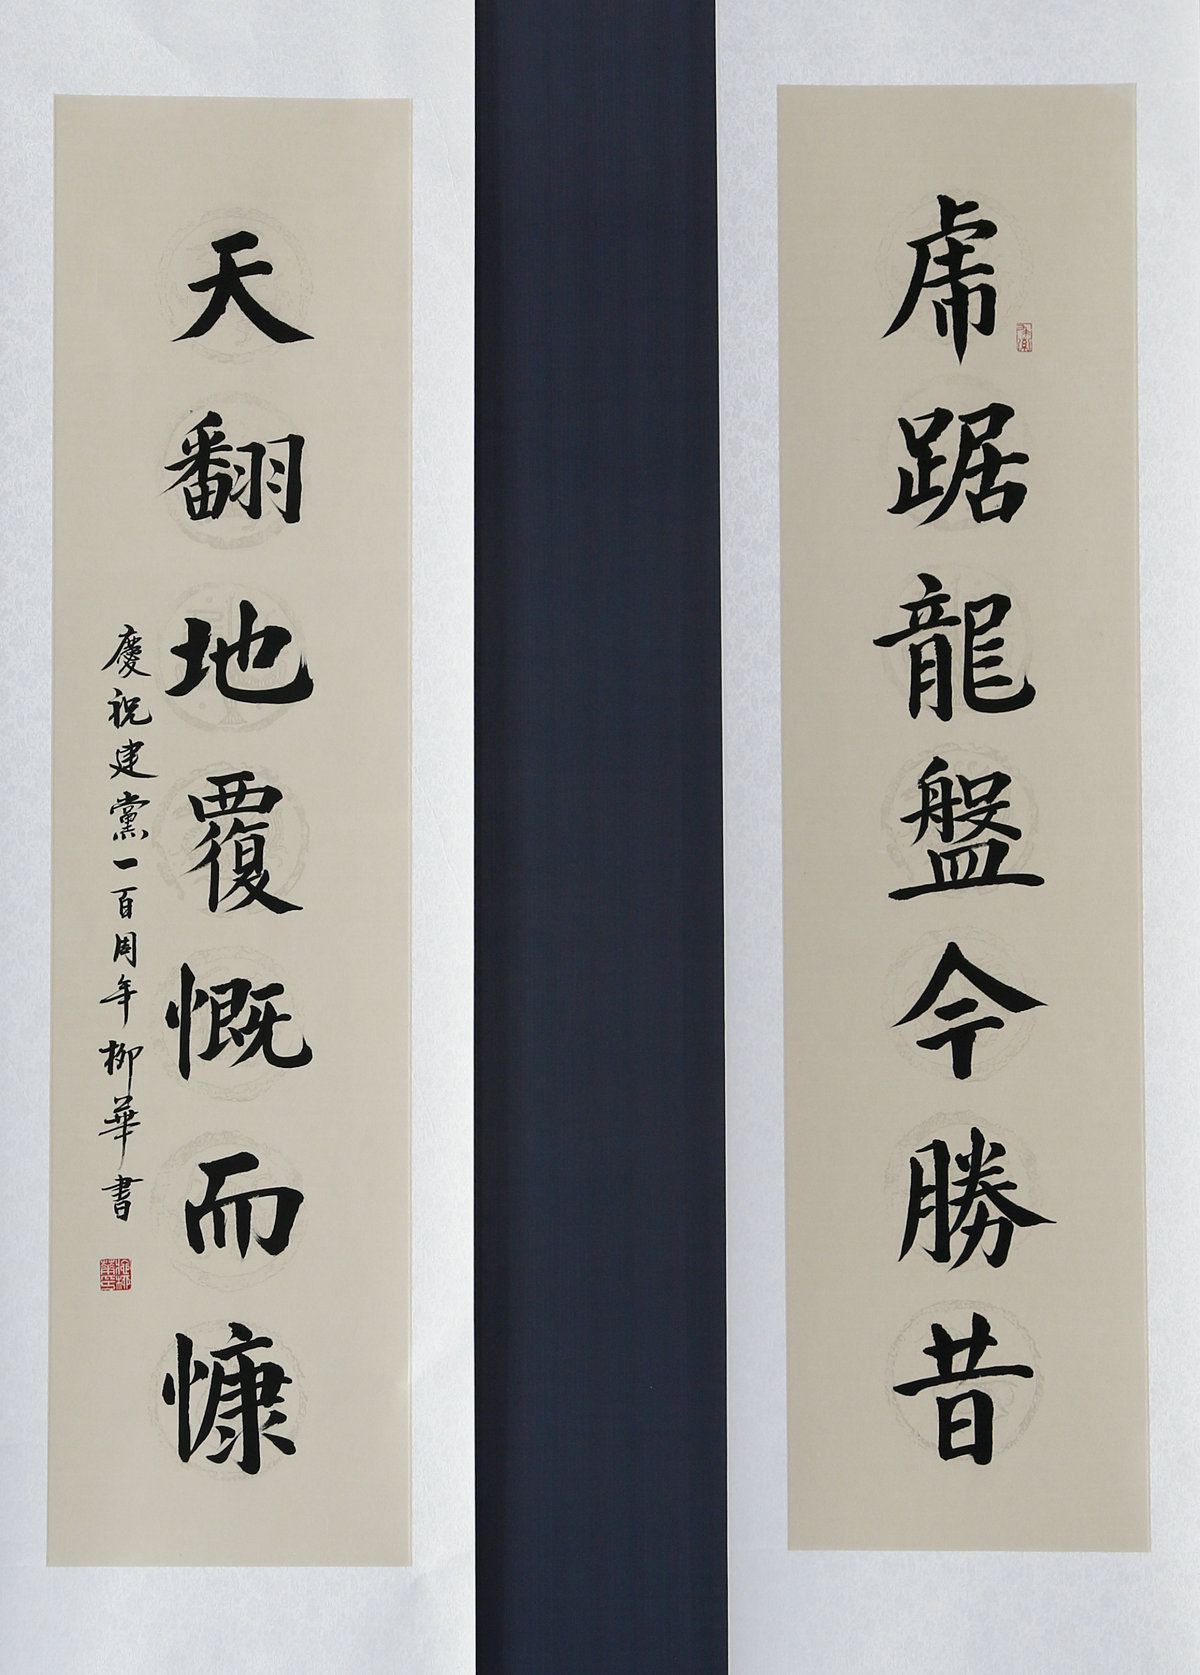 虎踞龍盤今勝昔
天翻地覆慨而慷
慶祝建黨一百周年柳華書